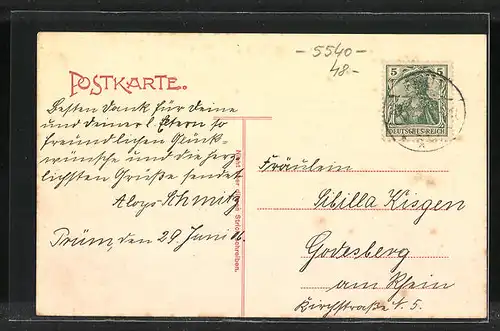 - 5540 -
48.-
POSTKARTE.
Besten Dank für Deine
und deiner l. Eltern so
freundlichen Glück-
wünsche und die herz-
lichsten Grüße sendet
Aloys Schmitz
Prüm, den 29. Juni 06.
5 5
DEUTSCHES REICH
Fräulein
Sibilla Kisgen
Godesberg
am Rhein
Kirchstraße N. 5.